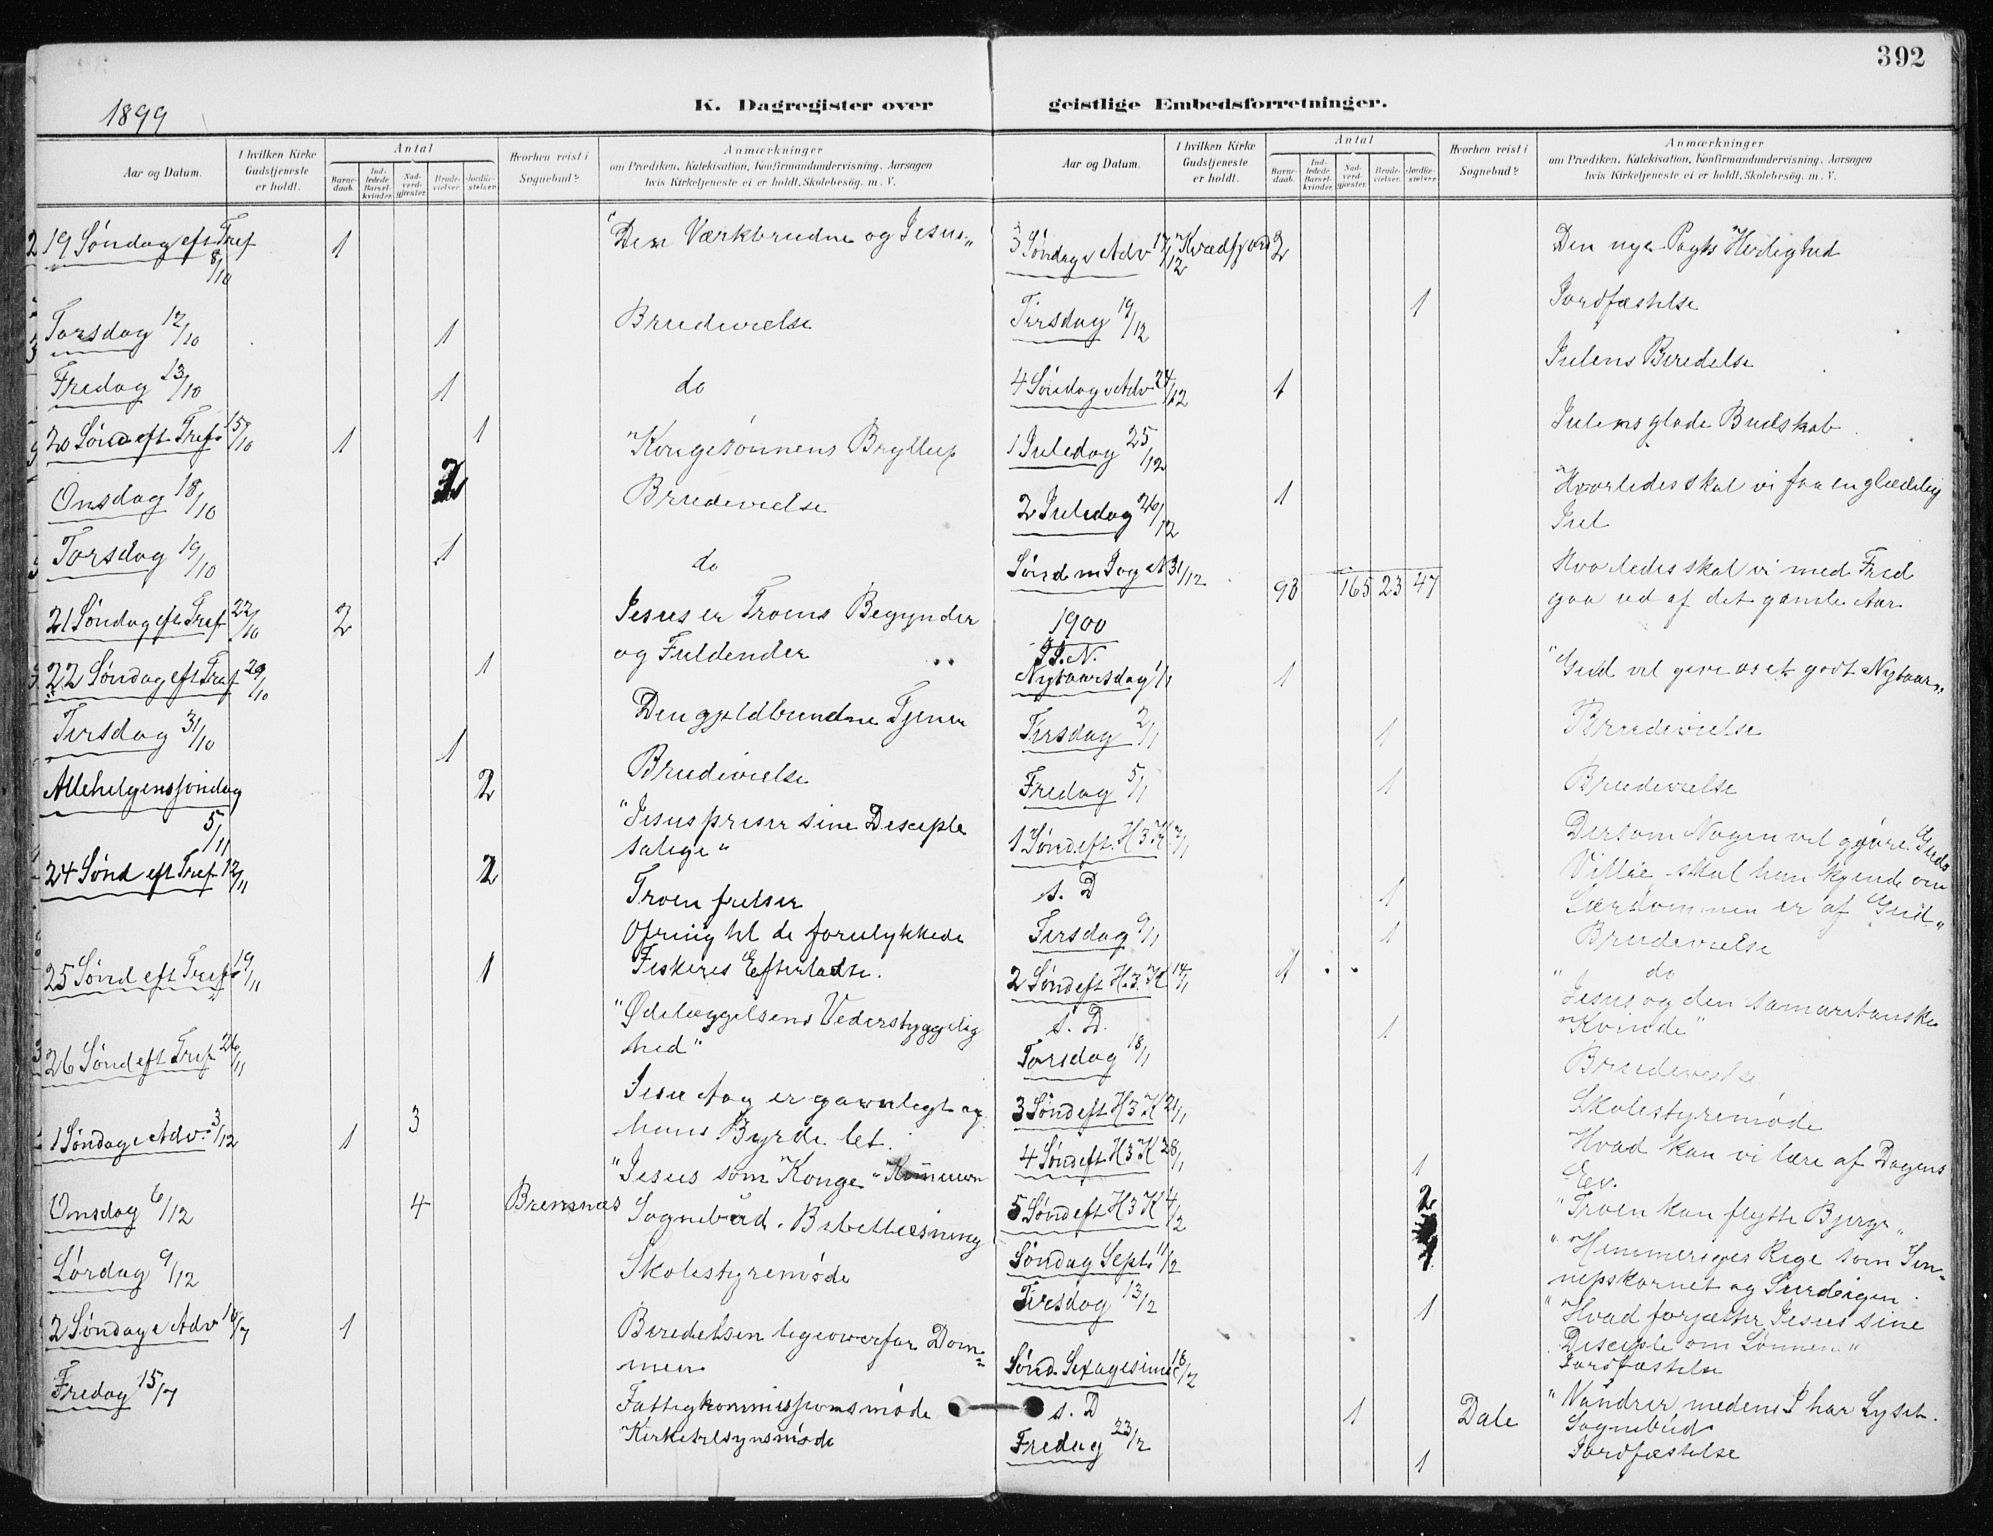 392
1899
K. Dagregister over geistlige Embedsforretninger.
Aar og Datum.
I hvilken Kirke Gudstjeneste er holdt.
Antal
Barne-daab.
Ind-ledede Barsel-kvinder.
Nad-verd-gjester.
Brude-vielser.
Jordfæ-stelser
Hvorhen reist i Sognebud?
Anmærkninger
om Prædiken, Katekisation, Konfirmandundervisning, Aarsagen
hvis Kirketjeneste ei er holdt, Skolebesøg. m. V.
19 Søndag eft Tref 8/10 1 "Den Værkbrudne og Jesus"
Torsdag 12/10 1 Brudevielse
Fredag 13/10 1 do
20 Sønd eft Tref 15/10 1 1 "Kongesønnens Bryllup
Onsdag 18/10 2 Brudevielse
Torsdag 19/10 1 do
21 Søndag eft Tref 22/10 2 Jesus er Troens Begynder
og Fuldender
22 Søndag eft Tref 29/10 1
Den gjeldbundne Tjener
Tirsdag 31/10 1
Brudevielse
Allehelgenssøndag 5/11 2
"Jesus priser sine Disciple
salige"
24 Sønd eft Tref 12/11 2
Troen frelser
Ofring til de forulykkede
Fiskeres Efterladte.
25 Sønd eft Tref 19/11 1
"Ødelæggelsens Vederstyggelig
hed"
26 Sønd eft Tref 26/11
Jesu Aag er gavnligt og
hans Byrde let.
1 Søndag i Adv. 3/12 1 3
"Jesus som Konge"
Onsdag 6/12 4 Bremsnæs Sognebud. Bibellæsning
Lørdag 9/12 Skolestyremøde
2 Søndag i Adv 10/7 1 Beredelsen ligeoverfor Dom-
men
Fredag 15/7 Fattigkommissionsmøde
Kirketilsynsmøde
Aar og Datum.
I hvilken Kirke Gudstjeneste er holdt.
Antal
Barne-daab.
Ind-ledede Barsel-kvinder.
Nad-verd-gjester.
Brude-vielser.
Jordfæ-stelser.
Hvorhen reist i Sognebud?
Anmærkninger
om Prædiken, Katekisation, Konfirmandundervisning, Aarsagen
hvis Kirketjeneste ei er holdt, Skolebesøg. m. V.
3 Søndag i Adv 17/12 Kvædfjord 2 Den nye Pagts Herlighed
Tirsdag 19/12 1 Jordfæstelse
4 Søndag i Adv 24/12 1 Julens Beredelse
1 Juledag 25/12 Julens glade Budskab
2 Juledag 26/12 1 Hvorledes skal vi faa en glædelig
Jul
Sønd m J og N 31/12 Hvorledes skal vi med Fred
gaa ud af det gamle Aar
93 165 23 47
1900
I J. N.
Nytaarsdag 1/1 1 "Gud vil give os et godt Nytaar"
Tirsdag 2/1 1 Brudevielse
Fredag 5/1 1 Brudevielse
1 Sønd eft H 3 K 7/1 Dersom Nogen vil gjøre Guds
Villie skal han kjende om
Lærdommen er af Gud"
s. D 1 Brudevielse
Tirsdag 9/1 1 do
2 Sønd eft H. 3. K 14/1 1 "Jesus og den samaritanske
Kvinde"
s. D. 1 Brudevielse
Torsdag 18/1 Skolestyremøde
3 Sønd eft H 3 K 21/1 Hvad kan vi lære af Dagens
Ev.
4 Sønd eft H 3 K 28/1 1 "Troen kan flytte Bjerge"
5 Sønd eft H 3 K 4/2 2 "Himmeriges Rige som Sen-
nepskornet og Surdeigen.
Søndag Sept. 11/2 "Hvad forjætter Jesus sine
Disciple om Lønnen"
Tirsdag 13/2 1 Jordfæstelse
Sønd. Sexagesima 18/2 "Vandrer medens I har Lyset.
s. D 1 Dale Sognebud
Fredag 23/2 1 Jordfæstelse